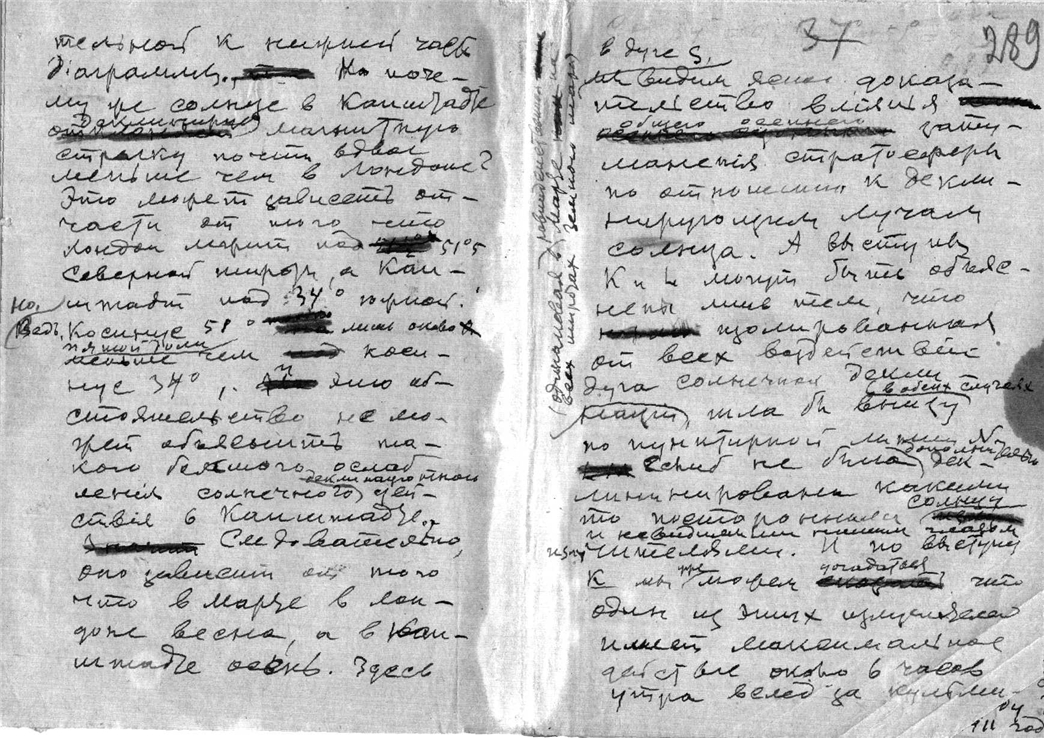 тельной к нижней части
діаграммы. Но поче-
му же солнце в Капштадте
магнитную
стрелку почти вдвое
меньше чем в Лондоне?
Это может зависеть от-
части от того что
Лондон лежит под 51°5
северной широты, а Кап-
штадт под 34° южной.
Но,
Ведь, Косинус 51° лишь около
пятой доли
меньше чем коси-
нус 34°, и это об-
стоятельство не мо-
жет объяснить та-
кого большого ослаб-
деклинаціонного
ленія солнечного дей-
ствія в Капштадте.
Следовательно,
оно зависит от того
что в марте в Лон-
доне весна, а в Кап-
штадте осень. Здесь
всех широтах земного шара)
37
289
в дуге S,
мы видим ясное доказа-
тельство вліянія
общего осеннего
зату-
маненія стратосферы
по отношению к декли-
нирующим лучам
солнца. А выступы
К и L могут быть объяс-
нены лишь тем, что
изолированная
от всех воздействій
дуга солнечной декли
в обеих случаях
націи, шла бы внизу
по пунктирной линии N,
дополнительно
Если б не была дек-
линирована какими
то посторонними солнцу
и невидимыми нашим глазам
излучителями. И по выступу
К мы же можем догадаться что
один из этих излучителей
имеет максимальное
действіе около 6 часов
утра вслед за кульми-